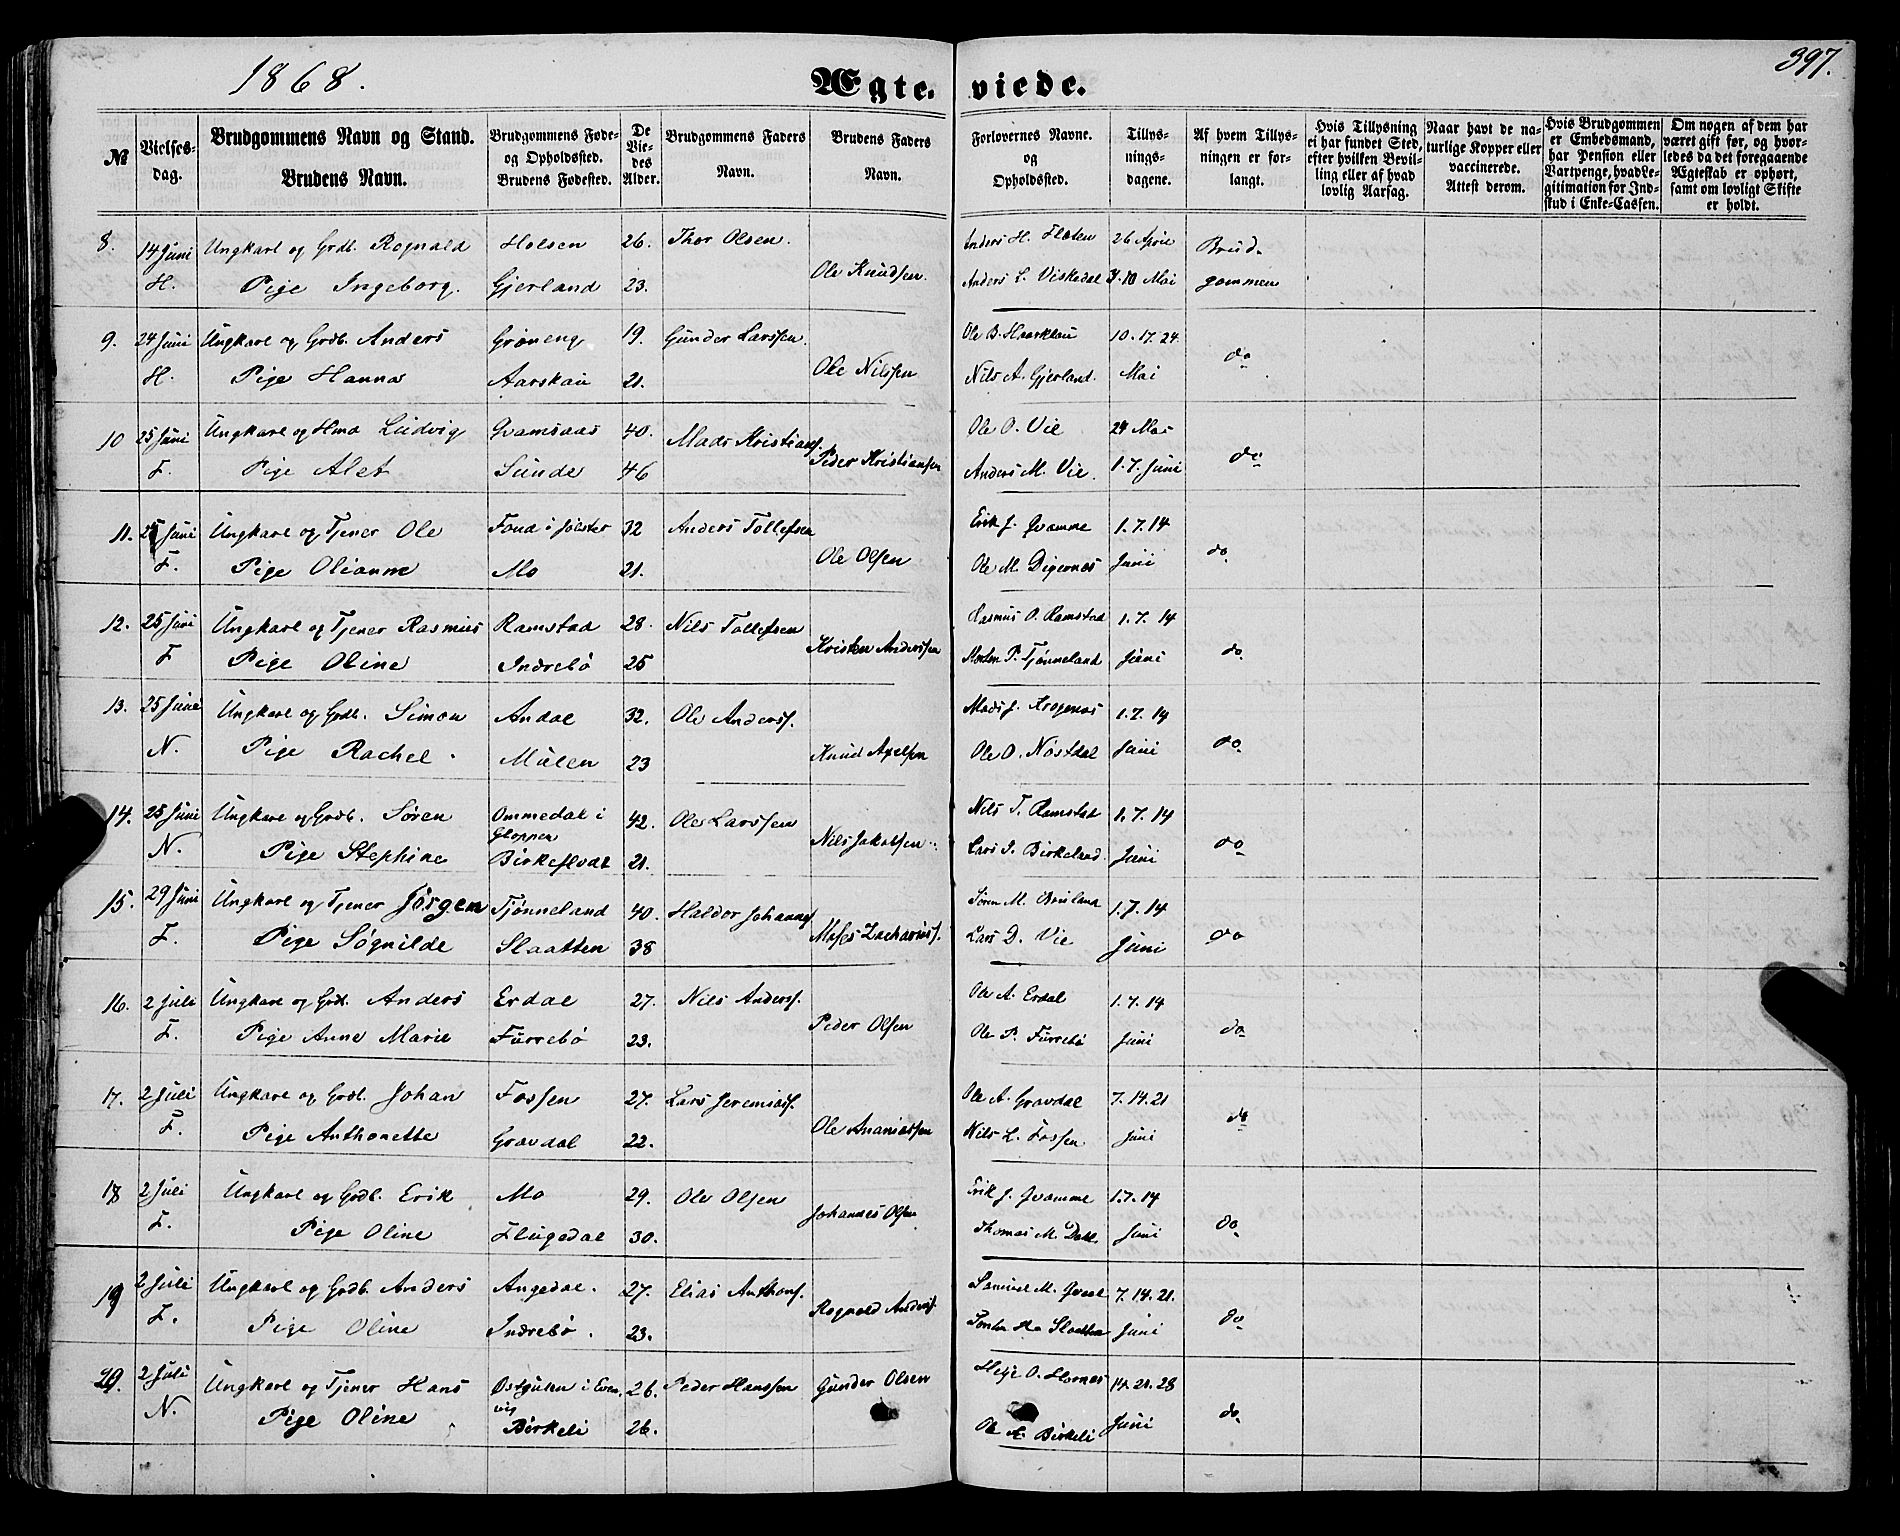 1868.
Ægte.
viede.
397.
№
Vielses-
dag.
Brudgommens Navn og Stand.
Brudens Navn.
Brudgommens Føde-
og Opholdssted.
Brudens Fødested.
De
Vie-
des
Alder.
Brudgommens Faders
Navn.
Brudens Faders
Navn.
Forlovernes Navne.
og
Opholdssted.
Tillys-
nings-
dagene.
Af hvem Tillys-
ningen er for-
langt.
Hvis Tillysning
ei har fundet Sted,
efter hvilken Bevil-
ling eller af hvad
lovlig Aarsag.
Naar havt de na-
turlige Kopper eller
vaccinerede.
Attest derom.
Hvis Brudgommen
er Embedsmand,
har Pension eller
Vartpenge, hvad Le-
gitimation for Ind-
skud i Enke-Cassen.
Om nogen af dem har
været gift før, og hvor-
ledes da det foregaaende
Ægteskab er ophørt,
samt om lovligt Skifte
er holdt.
8. 14 Juni Ungkarl og Grdb. Rognald Holsen 26. Thor Olsen. Anders H. Floten 26 April Brud-
H. Pige Ingeborg. Gjerland 23. Ole Knudsen. Anders L. Viskedal 3.10 Mai gommen
9. 24 Juni Ungkarl og Grdb. Anders Grøneng 19. Gunder Larssen. Ole B. Haarklau 10. 17. 24.
H. Pige Hanna Aarskau 21. Ole Nilssen Nils A. Gjerland. Mai do
10 25 Juni Ungkarl og Hmd Ludvig Qvamsaas 40. Mads Kristians. Ole O. Vie 24 Mai
F. Pige Alet Sunde 46 Peder Kristiansen Anders M. Vie. 1. 7. Juni do
11. 25 Juni Ungkarl og Tjener Ole Fond i Jølster 32 Anders Tollefsen Erik J. Qvamme 1. 7. 14
F. Pige Olianne Mo 21. Ole Olsen Ole M. Digernes Juni do
12. 25 Juni Ungkarl og Tjener Rasmus Ramstad 28. Nils Tollefsen Rasmus O. Ramstad 1. 7. 14
F Pige Oline Indrebø 25 Kristen Anderssen Morten P. Tjønneland Juni do
13. 25 Juni Ungkarl og Grdb. Simon Andal 32. Ole Anderss. Mads J. Krogenes 1. 7. 14
N. Pige Rachel. Mulen 23 Knud Axelsen Ole O. Nøstdal Juni do
14. 25 Juni Ungkarl og Grdb. Søren Ommedal i 42. Ole Larssen Nils T. Ramstad 1. 7. 14
Gloppen
N. Pige Stephine Birkeflodt 21. Nils Jakobsen Lars I. Birkeland. Juni do
15. 29 Juni Ungkarl og Tjener Jørgen Tjønneland 40. Haldor Johanns. Søren M. Bruland 1. 7. 14
F. Pige Søgnilde Slaatten 38 Moses Zacharias. Lars D. Vie Juni do
16. 2 Juli Ungkarl og Grdb. Anders Erdal 27. Nils Anderss. Ole A. Erdal 1. 7. 14
F. Pige Anne Marie Furrebø 23. Peder Olsen Ole P. Furrebø Juni do
17. 2 Juli Ungkarl og Grdb. Johan Fossen 27. Lars Jeremiass. Ole A. Gravdal 7. 14. 21
F. Pige Anthonette Gravdal 22. Ole Ananiassen Nils L. Fossen Juni do
18 2 Juli Ungkarl og Grdb. Erik Mo 29. Ole Olsen Erik J. Qvamme 1. 7. 14
F. Pige Oline Flugedal 30. Johannes Olsen Thomas M. Dahl. Juni do
19 2 Juli Ungkarl og Grdb. Anders Angedal. 27. Elias Anthons. Samuel M. 7. 14. 21.
F. Pige Oline Indrebø. 23. Rognald Anders. Slaatten Juni do
20. 2 Juli Ungkarl og Tjener Hans Østgulen i Even- 26. Peder Hanssen Gunder Olsen Helje O. Hornes 14. 21. 28
vig
N. Pige Oline Birkeli 26. Ole A. Birkeli Juni do